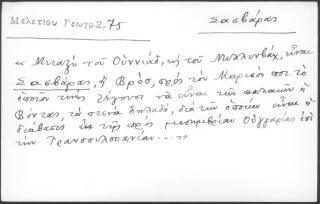 Μελετίου Γεωγρ. 2, 75
Σασβάρας
« Μεταξὺ τοῦ Οὐννιάδ, κὴ τοῦ Μιλλενβάχ, εἶναι
Σασβάρας, ἢ Βρόσ, πρὸς τὸν Μαρισὸν ποτ. τὸ
ὁποῖον τινὲς ζήτουσι νὰ εἶναι τῶν παλαιῶν ἡ
τὰ στενὰ δηλαδή, διὰ τῶν ὁποίων εἶναι ἡ
διάβασις ἐκ τῆς πρὸς μεσημβρίαν Οὐγγαρίας ἐπὶ
τὴν Τρανσυλβανίαν... »